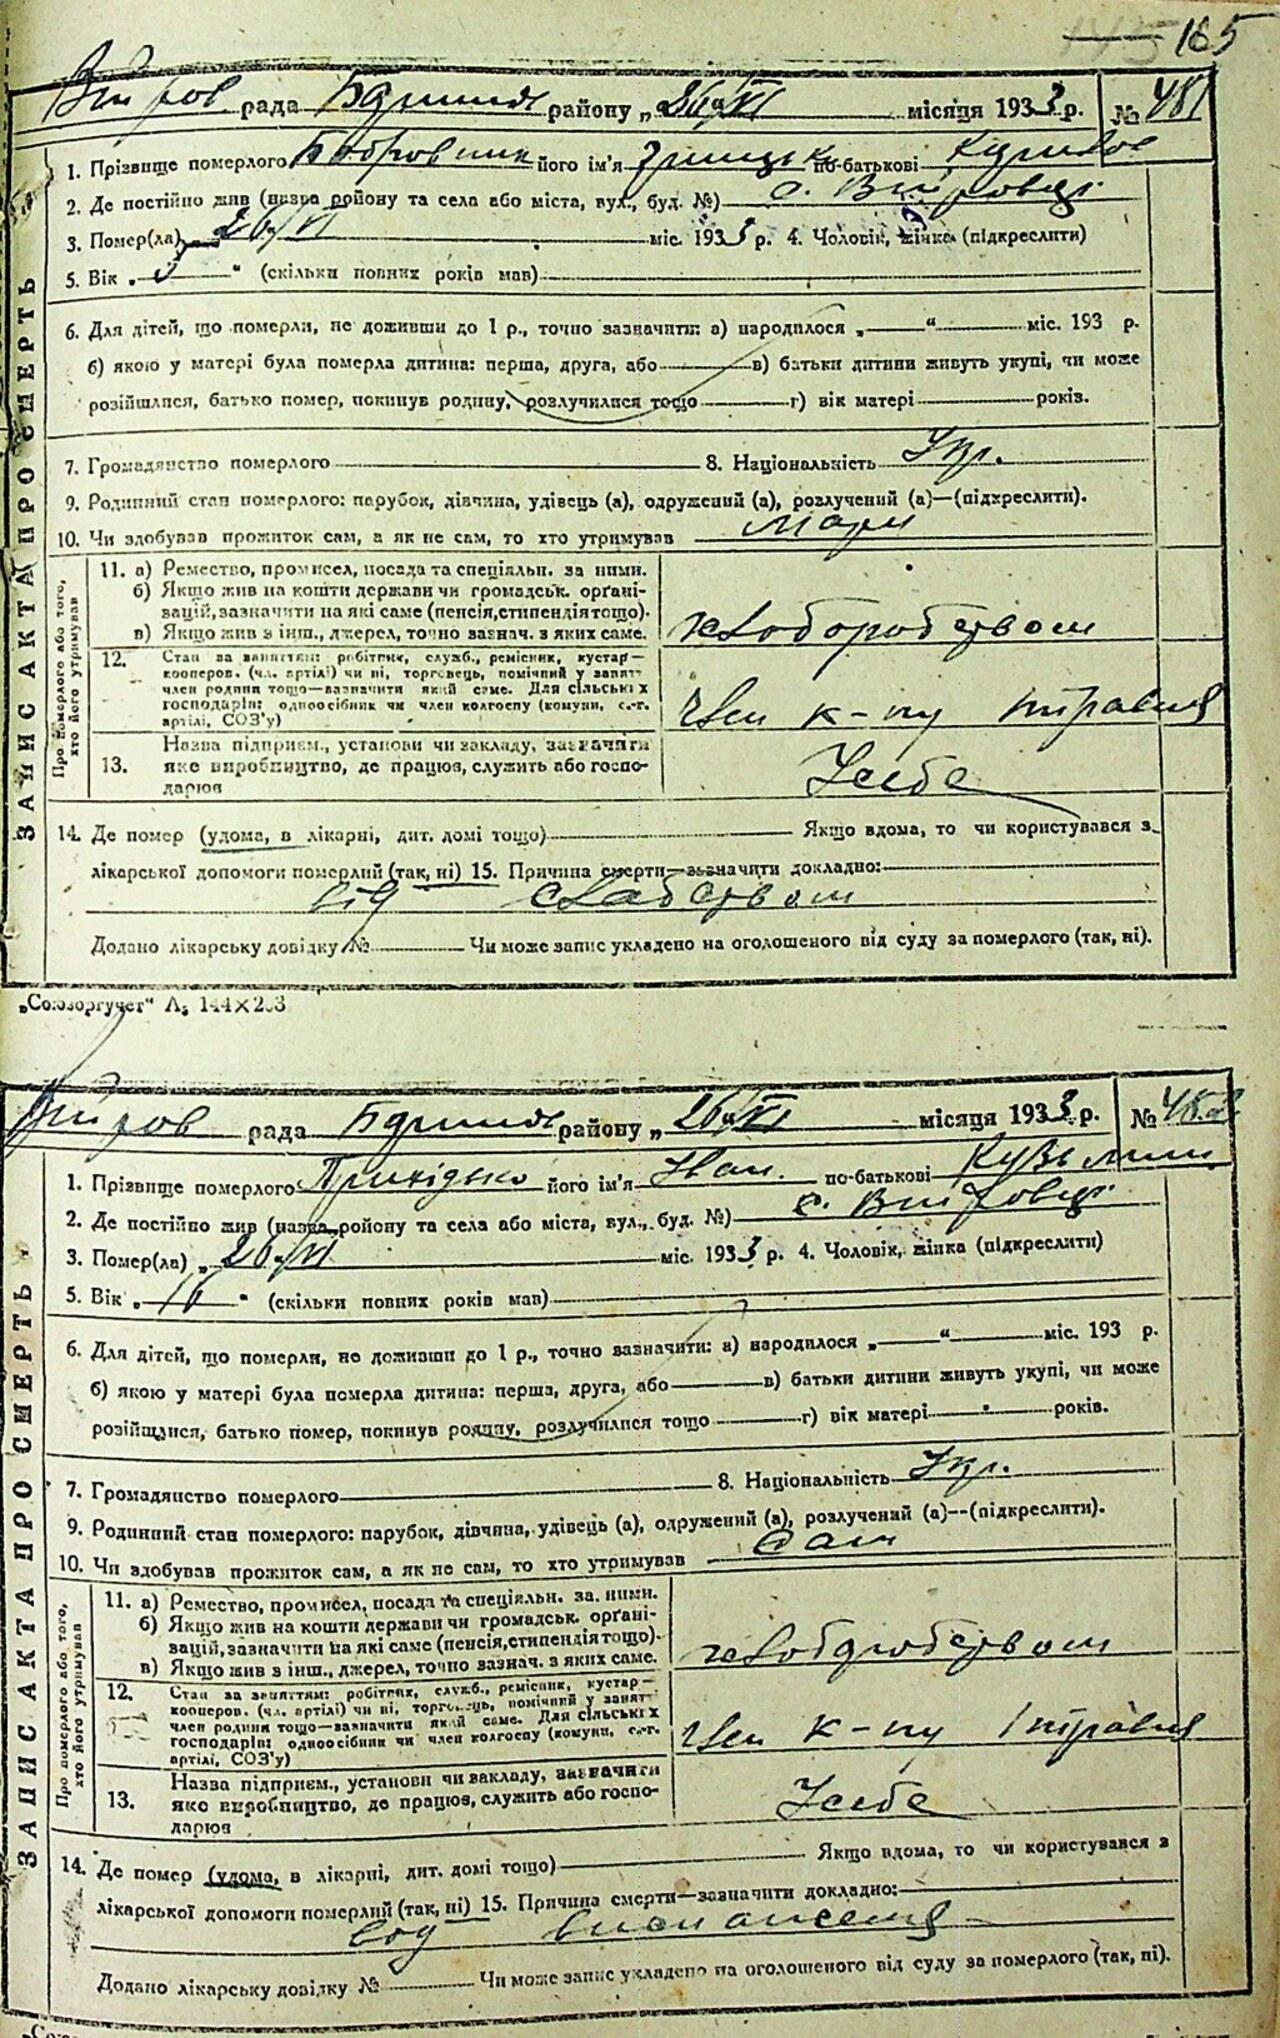 165
рада району „26/VI місяця 1933 р. № 481
1. Прізвище померлого Бобровник його ім'я Грицько по-батькові
2. Де постійно жив (назва району та села або міста, вул., буд. №) с.
3. Помер(ла) „26/VI міс. 1933 р. 4. Чоловік, жінка (підкреслити)
5. Вік „ “ (скільки повних років мав)
6. Для дітей, що померли, не доживши до 1 р., точно зазначити: а) народилося „ “ міс. 193 р.
б) якою у матері була померла дитина: перша, друга, або в) батьки дитини живуть укупі, чи може
розійшлися, батько помер, покинув родину, розлучилися тощо г) вік матері років.
7. Громадянство померлого 8. Національність Укр.
9. Родинний стан померлого: парубок, дівчина, удівець (а), одружений (а), розлучений (а)—(підкреслити).
10. Чи здобував прожиток сам, а як не сам, то хто утримував
ЗАПИС АКТА ПРО СМЕРТЬ
Про померлого або того, хто його утримував
11. а) Ремество, промисел, посада та спеціяльн. за ними.
б) Якщо жив на кошти держави чи громадськ. орґані-
зацій, зазначити на які саме (пенсія, стипендія тощо).
в) Якщо жив з інш., джерел, точно зазнач. з яких саме.
хлоборобством
12. Стан за заняттям: робітник, служб., ремісник, кустар—
кооперов. (чл. артілі) чи ні, торговець, помічний у занятт
член родини тощо—зазначити який саме. Для сільських
господарів: одноосібник чи член колгоспу (комуни, с.-г.
артілі, СОЗ'у)
член к-пу
13. Назва підприєм., установи чи закладу, зазначити
яке виробництво, де працює, служить або госпо-
дарює
У себе
14. Де помер (удома, в лікарні, дит. домі тощо) Якщо вдома, то чи користувався з
лікарської допомоги померлий (так, ні) 15. Причина смерти—зазначити докладно:
від слабством
Додано лікарську довідку № Чи може запис укладено на оголошеного від суду за померлого (так, ні).
„Союзоргучет“ А₅ 144×203
рада району „26/VI місяця 1933 р. №
1. Прізвище померлого Прихідько його ім'я Іван. по-батькові Кузьмич
2. Де постійно жив (назва району та села або міста, вул., буд. №) с.
3. Помер(ла) „26/VI міс. 1933 р. 4. Чоловік, жінка (підкреслити)
5. Вік „ “ (скільки повних років мав)
6. Для дітей, що померли, не доживши до 1 р., точно зазначити: а) народилося „ “ міс. 193 р.
б) якою у матері була померла дитина: перша, друга, або в) батьки дитини живуть укупі, чи може
розійшлися, батько помер, покинув родину, розлучилися тощо г) вік матері років.
7. Громадянство померлого 8. Національність Укр.
9. Родинний стан померлого: парубок, дівчина, удівець (а), одружений (а), розлучений (а)—(підкреслити).
10. Чи здобував прожиток сам, а як не сам, то хто утримував сам
ЗАПИС АКТА ПРО СМЕРТЬ
Про померлого або того, хто його утримував
11. а) Ремество, промисел, посада та спеціяльн. за. ними.
б) Якщо жив на кошти держави чи громадськ. орґані-
зацій, зазначити на які саме (пенсія, стипендія тощо).
в) Якщо жив з інш., джерел, точно зазнач. з яких саме.
12. Стан за заняттям: робітник, служб., ремісник, кустар—
кооперов. (чл. артілі) чи ні, торговець, помічний у занятт
член родини тощо—зазначити який саме. Для сільських
господарів: одноосібник чи член колгоспу (комуни, с.-г.
артілі, СОЗ'у)
член к-пу
13. Назва підприєм., установи чи закладу, зазначити
яке виробництво, де працює, служить або госпо-
дарює
У себе
14. Де помер (удома, в лікарні, дит. домі тощо) Якщо вдома, то чи користувався з
лікарської допомоги померлий (так, ні) 15. Причина смерти—зазначити докладно:
од виснаження
Додано лікарську довідку № Чи може запис укладено на оголошеного від суду за померлого (так, ні).